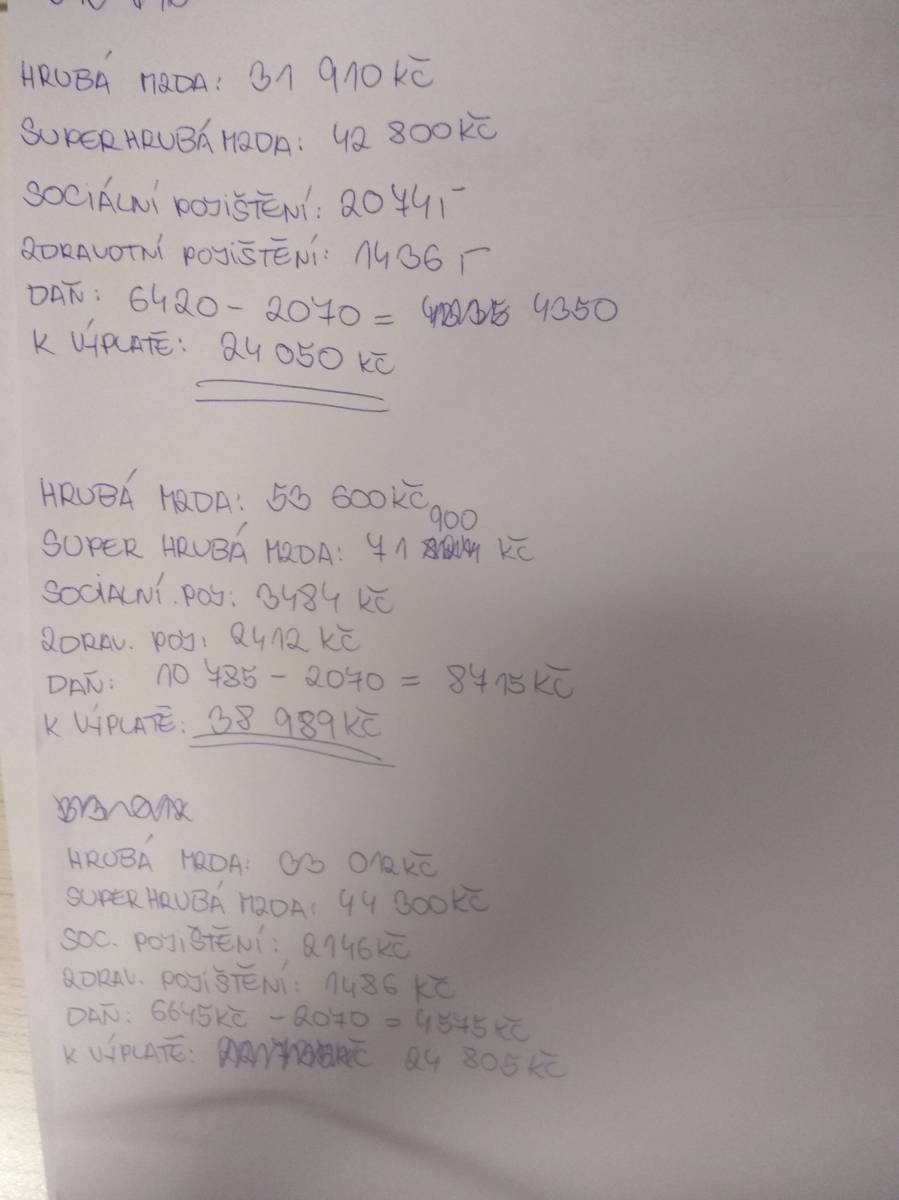 HRUBÁ MZDA: 31 910 KČ
SUPERHRUBÁ MZDA: 42 800 KČ
SOCIÁLNÍ POJIŠTĚNÍ: 2074,-
ZDRAVOTNÍ POJIŠTĚNÍ: 1436,-
DAŇ: 6420 - 2070 = 4350
K VÝPLATĚ: 24 050 KČ
HRUBÁ MZDA: 53 600 KČ
SUPER HRUBÁ MZDA: 71 900 KČ
SOCIALNÍ. POJ: 3484 KČ
ZDRAV. POJ: 2412 KČ
DAŇ: 10 785 - 2070 = 8715 KČ
K VÝPLATĚ: 38 989 KČ
HRUBÁ MZDA: 33 012 KČ
SUPERHRUBÁ MZDA: 44 300 KČ
SOC. POJIŠTĚNÍ: 2146 KČ
ZDRAV. POJIŠTĚNÍ: 1486 KČ
DAŇ: 6645 KČ - 2070 = 4575 KČ
K VÝPLATĚ: 24 805 KČ